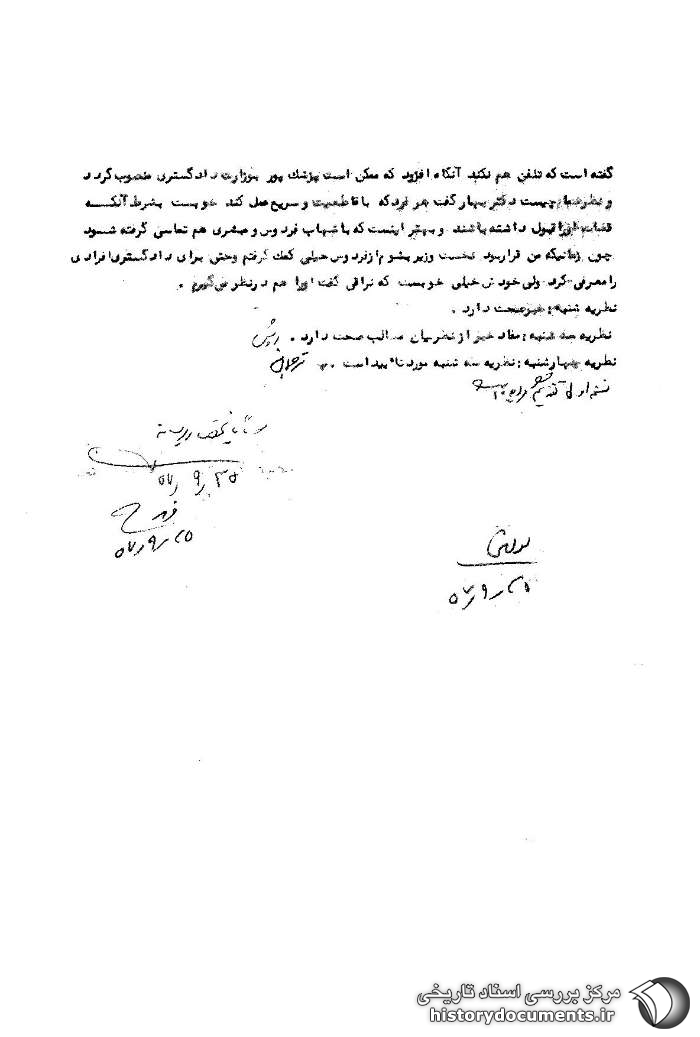 گفته است که تلفن هم نکنید آنگاه افزود که ممکن است پزشك پور بوزارت دادگستری منصوب گردد
و نظر شما چیست دکتر بهار گفت هر فردی که با قاطعیت و سریع عمل کند خوبست بشرط آنکه
قضات او را قبول داشته باشند و بهتر اینست که با شهاب فردوس و مبشری هم تماسی گرفته شود
چون زمانیکه من قرار بود نخست وزیر بشوم از فردوس خیلی کمك گرفتم وحتی برای دادگستری افرادی
را معرفی کرد ولی خودش خیلی خوبست که نراقی گفت او را هم در نظر می‌گیرم .
نظریه شنبه : خبر صحت دارد .
نظریه سه شنبه : مفاد خبر از نظر بیان مطالب صحت دارد .
نظریه چهارشنبه : نظریه سه شنبه مورد تائید است .
۵۷/۹/۲۵
۵۷/۹/۲۵
۵۷/۹/۲۵
مرکز بررسی اسناد تاریخی
historydocuments.ir